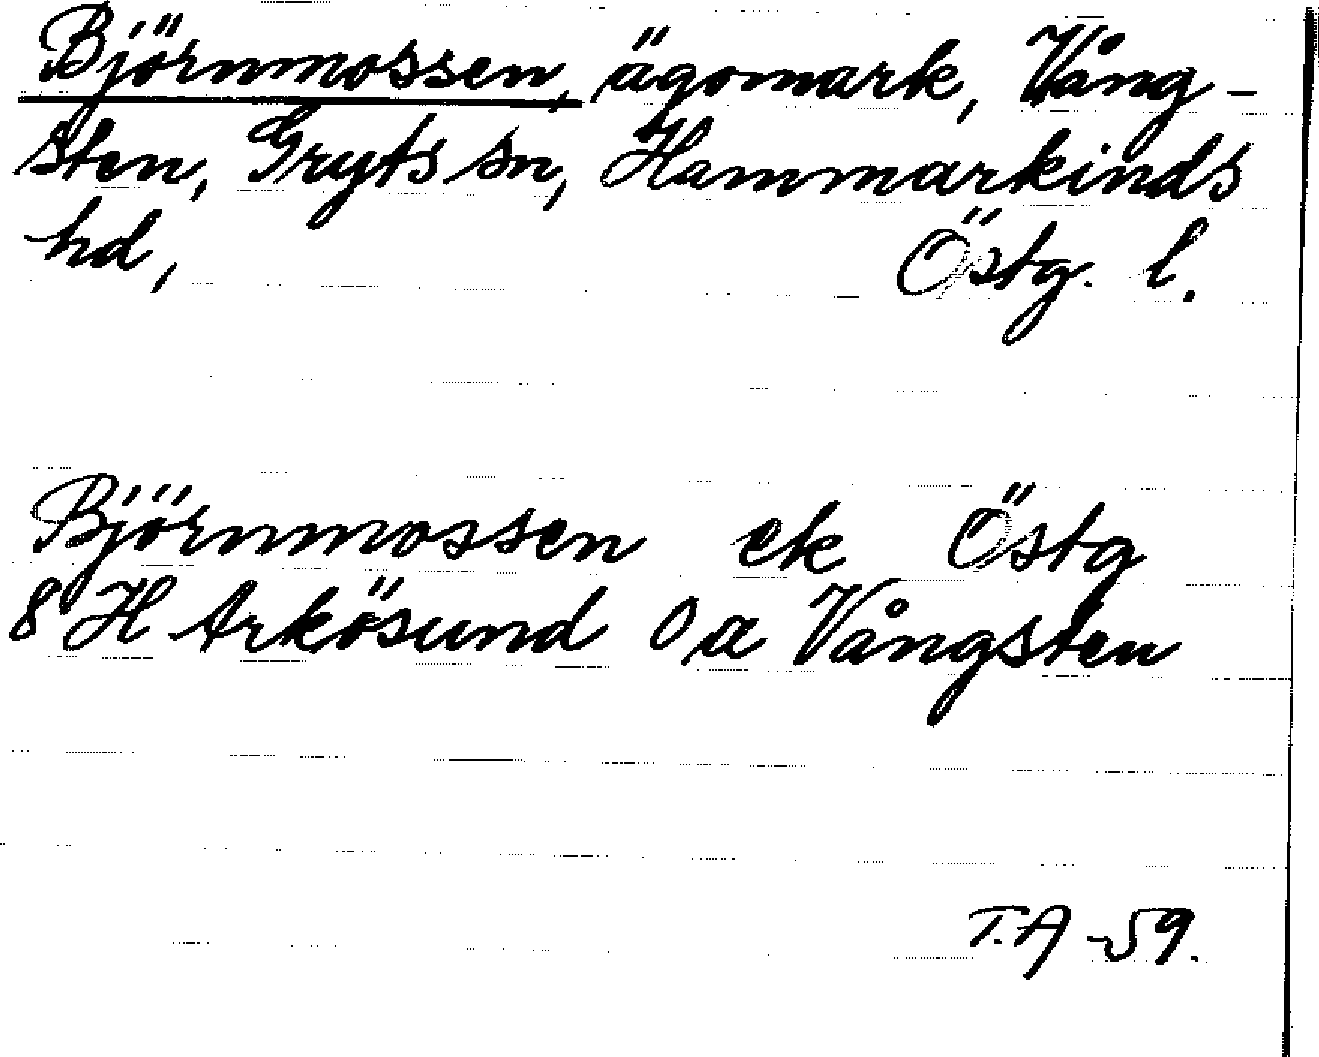 Björnmossen, ägomark, Vång-
sten, Gryts sn, Hammarkinds
hd, Östg. l.
Björnmossen ek Östg
8 H Arkösund Oa Vångsten
T.A -59.